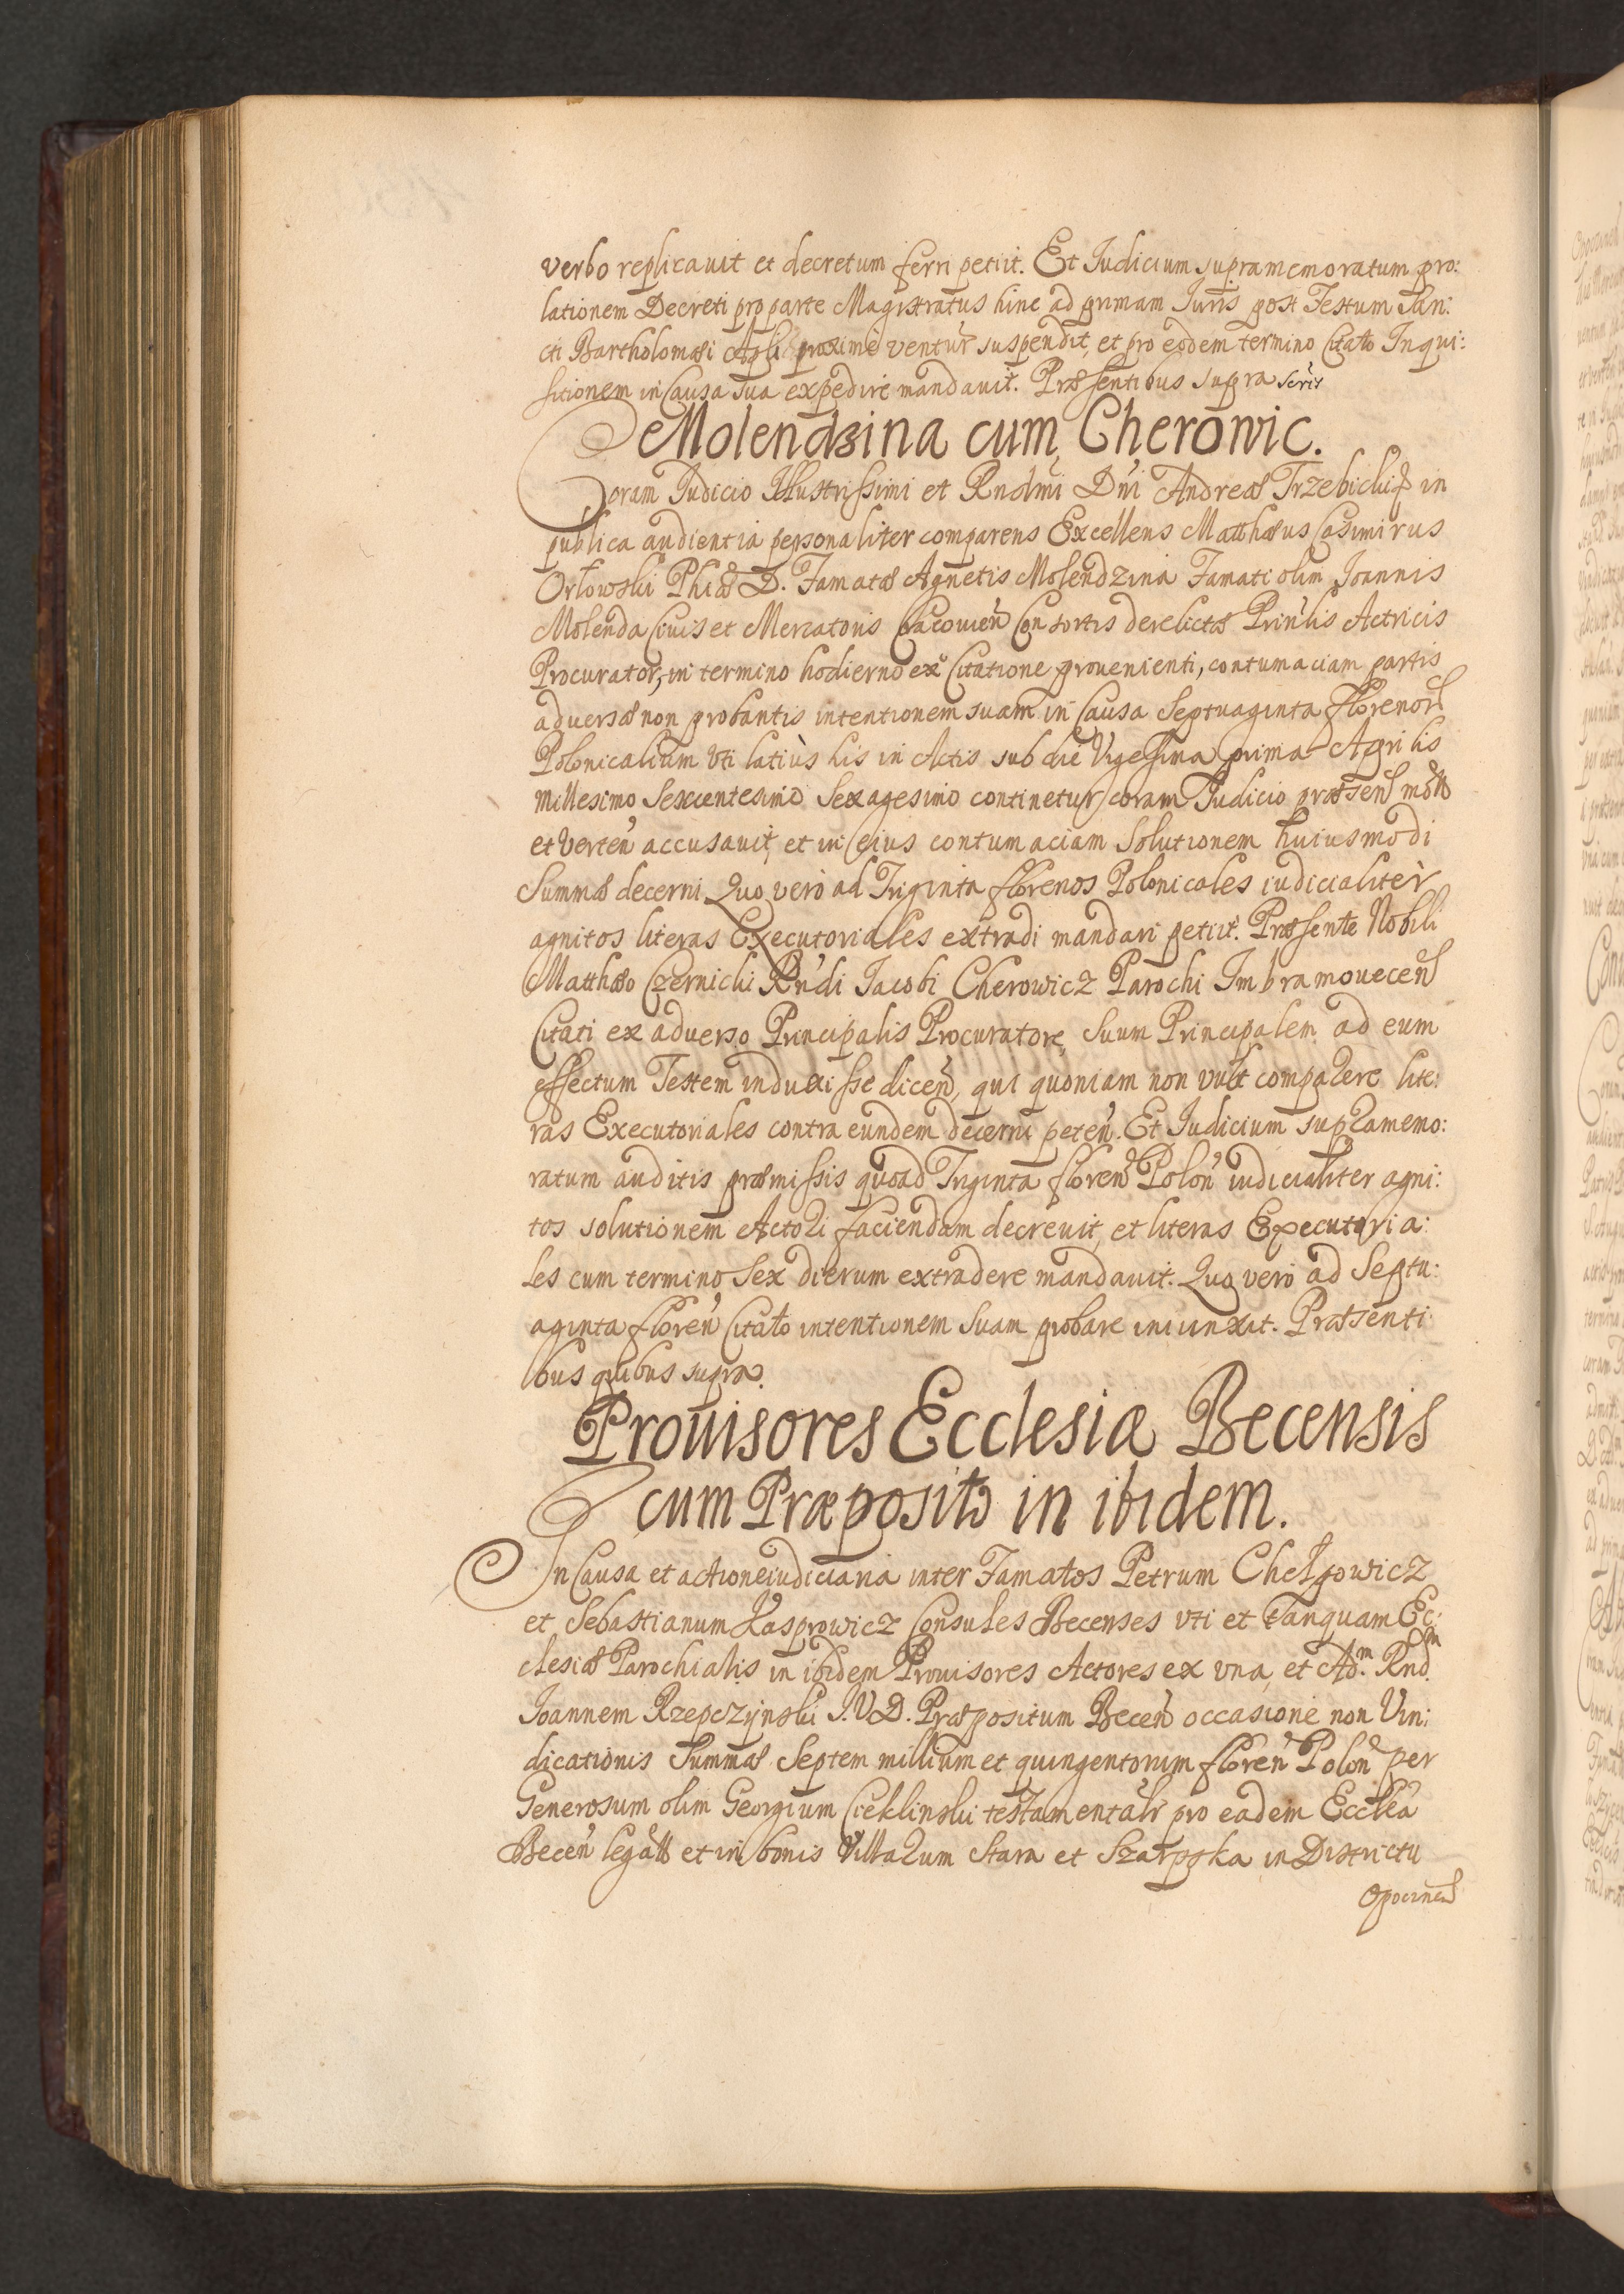 verbo replicauit et decretum ferri petiit. Et Iudicium supramemoratum pro:
lationem Decreti pro parte Magistratus hinc ad primam Iuris post Festum San:
cti Bartholomæi Apli proximè ventur̃ suspendit, et pro eodem termino Citato Inqui:
sitionem in Causa sua expedire mandauit. Præsentibus supra scris
Molendzina cum Cherowic.
Coram Iudicio Illustrissimi et Rndmi Dñi Andreæ Trzebicki in
publica audientia personaliter comparens Excellens Matthæus Casimirus
Orłowski Phiæ D. Famatæ Agnetis Molendzina Famati olim Ioannis
Molenda Ciuis et Mercatoris Cracouieñ Consortis derelictæ Prinlis Actricis
Procurator, in termino hodierno ex Citatione prouenienti, contumaciam partis
aduersæ non probantis intentionem suam in Causa Septuaginta florenor
Polonicalium vti latiùs his in Actis sub die Vigesima prima Aprilis
Millesimo Sexcentesimo Sexagesimo continetur coram Iudicio præsen
et verteñ accusauit, et in eius contumaciam Solutionem huiusmodi
Summæ decerni Quo verò ad Triginta florenos Polonicales iudicialiter
agnitos literas Executoriales extradi mandari petiit. Præsente Nobili
Matthæo Czernicki Rñdi Iacobi Cherowicz Parochi Imbramoueceñ
Citati ex aduerso Principalis Procuratore, Suum Principalem ad eum
effectum Testem induxisse diceñ, qui quoniam non vult comparere lite:
ras Executoriales contra eundem decerni peteñ. Et Iudicium supramemo:
ratum auditis præmissis quoad Triginta floreñ Poloñ iudicialiter agni:
tos solutionem Actori faciendam decreuit, et literas Executoria:
les cum termino Sex dierum extradere mandauit. Quo verò ad Septu:
aginta floreñ Citato intentionem suam probare iniunxit. Præsenti
bus quibus supra.
Prouisores Ecclesiæ Becensis
cum Præposito in ibidem.
In Causa et actione iudiciaria inter Famatos Petrum Chełpowicz
et Sebastianum Kasprowicz Consules Becenses vti et tanquam Ec:
clesiæ Parochialis in ibidem Prouisores Actores ex vna, et Adm. Rndm
Ioannem Rzepczynski I.V.D. Præpositum Beceñ occasione non Vin:
dicationis Summæ Septem millium et quingentorum floreñ Poloñ per
Generosum olim Georgium Cieklinski testamentalr pro eadem Ecclia
Beceñ legatæ et in bonis Villarum Stara et Szarpska in Districtu
Opocineñ